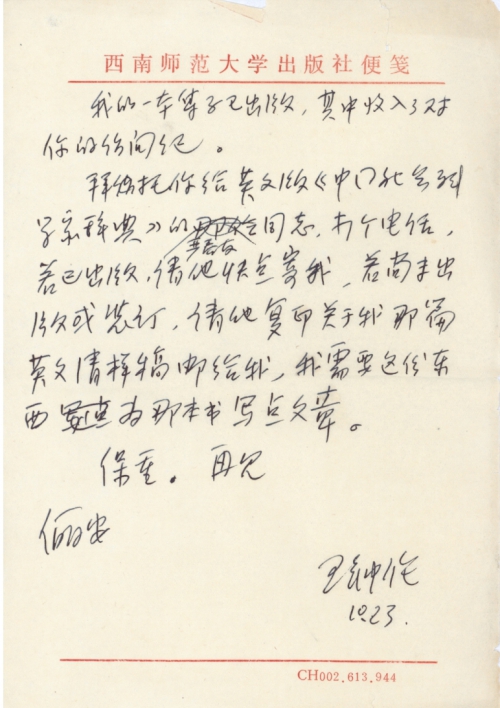 西南师范大学出版社便笺
我的一本集子已出版，其中收入了对
你的访问纪。
拜托你给英文版《中
辞典》的同志，打个电话，
若已出版，请他快点寄我，若尚未出
版或装订，请他复印关于我那篇
英文清样稿邮给我，我需要这份东
西为那本书写点文章。
保重。再见
俪安
王钟
10.23.
CH002.613.944